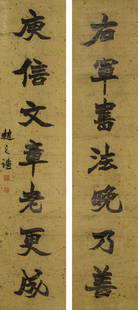 右軍書法晚乃善
庾信文章老更成
趙之謙